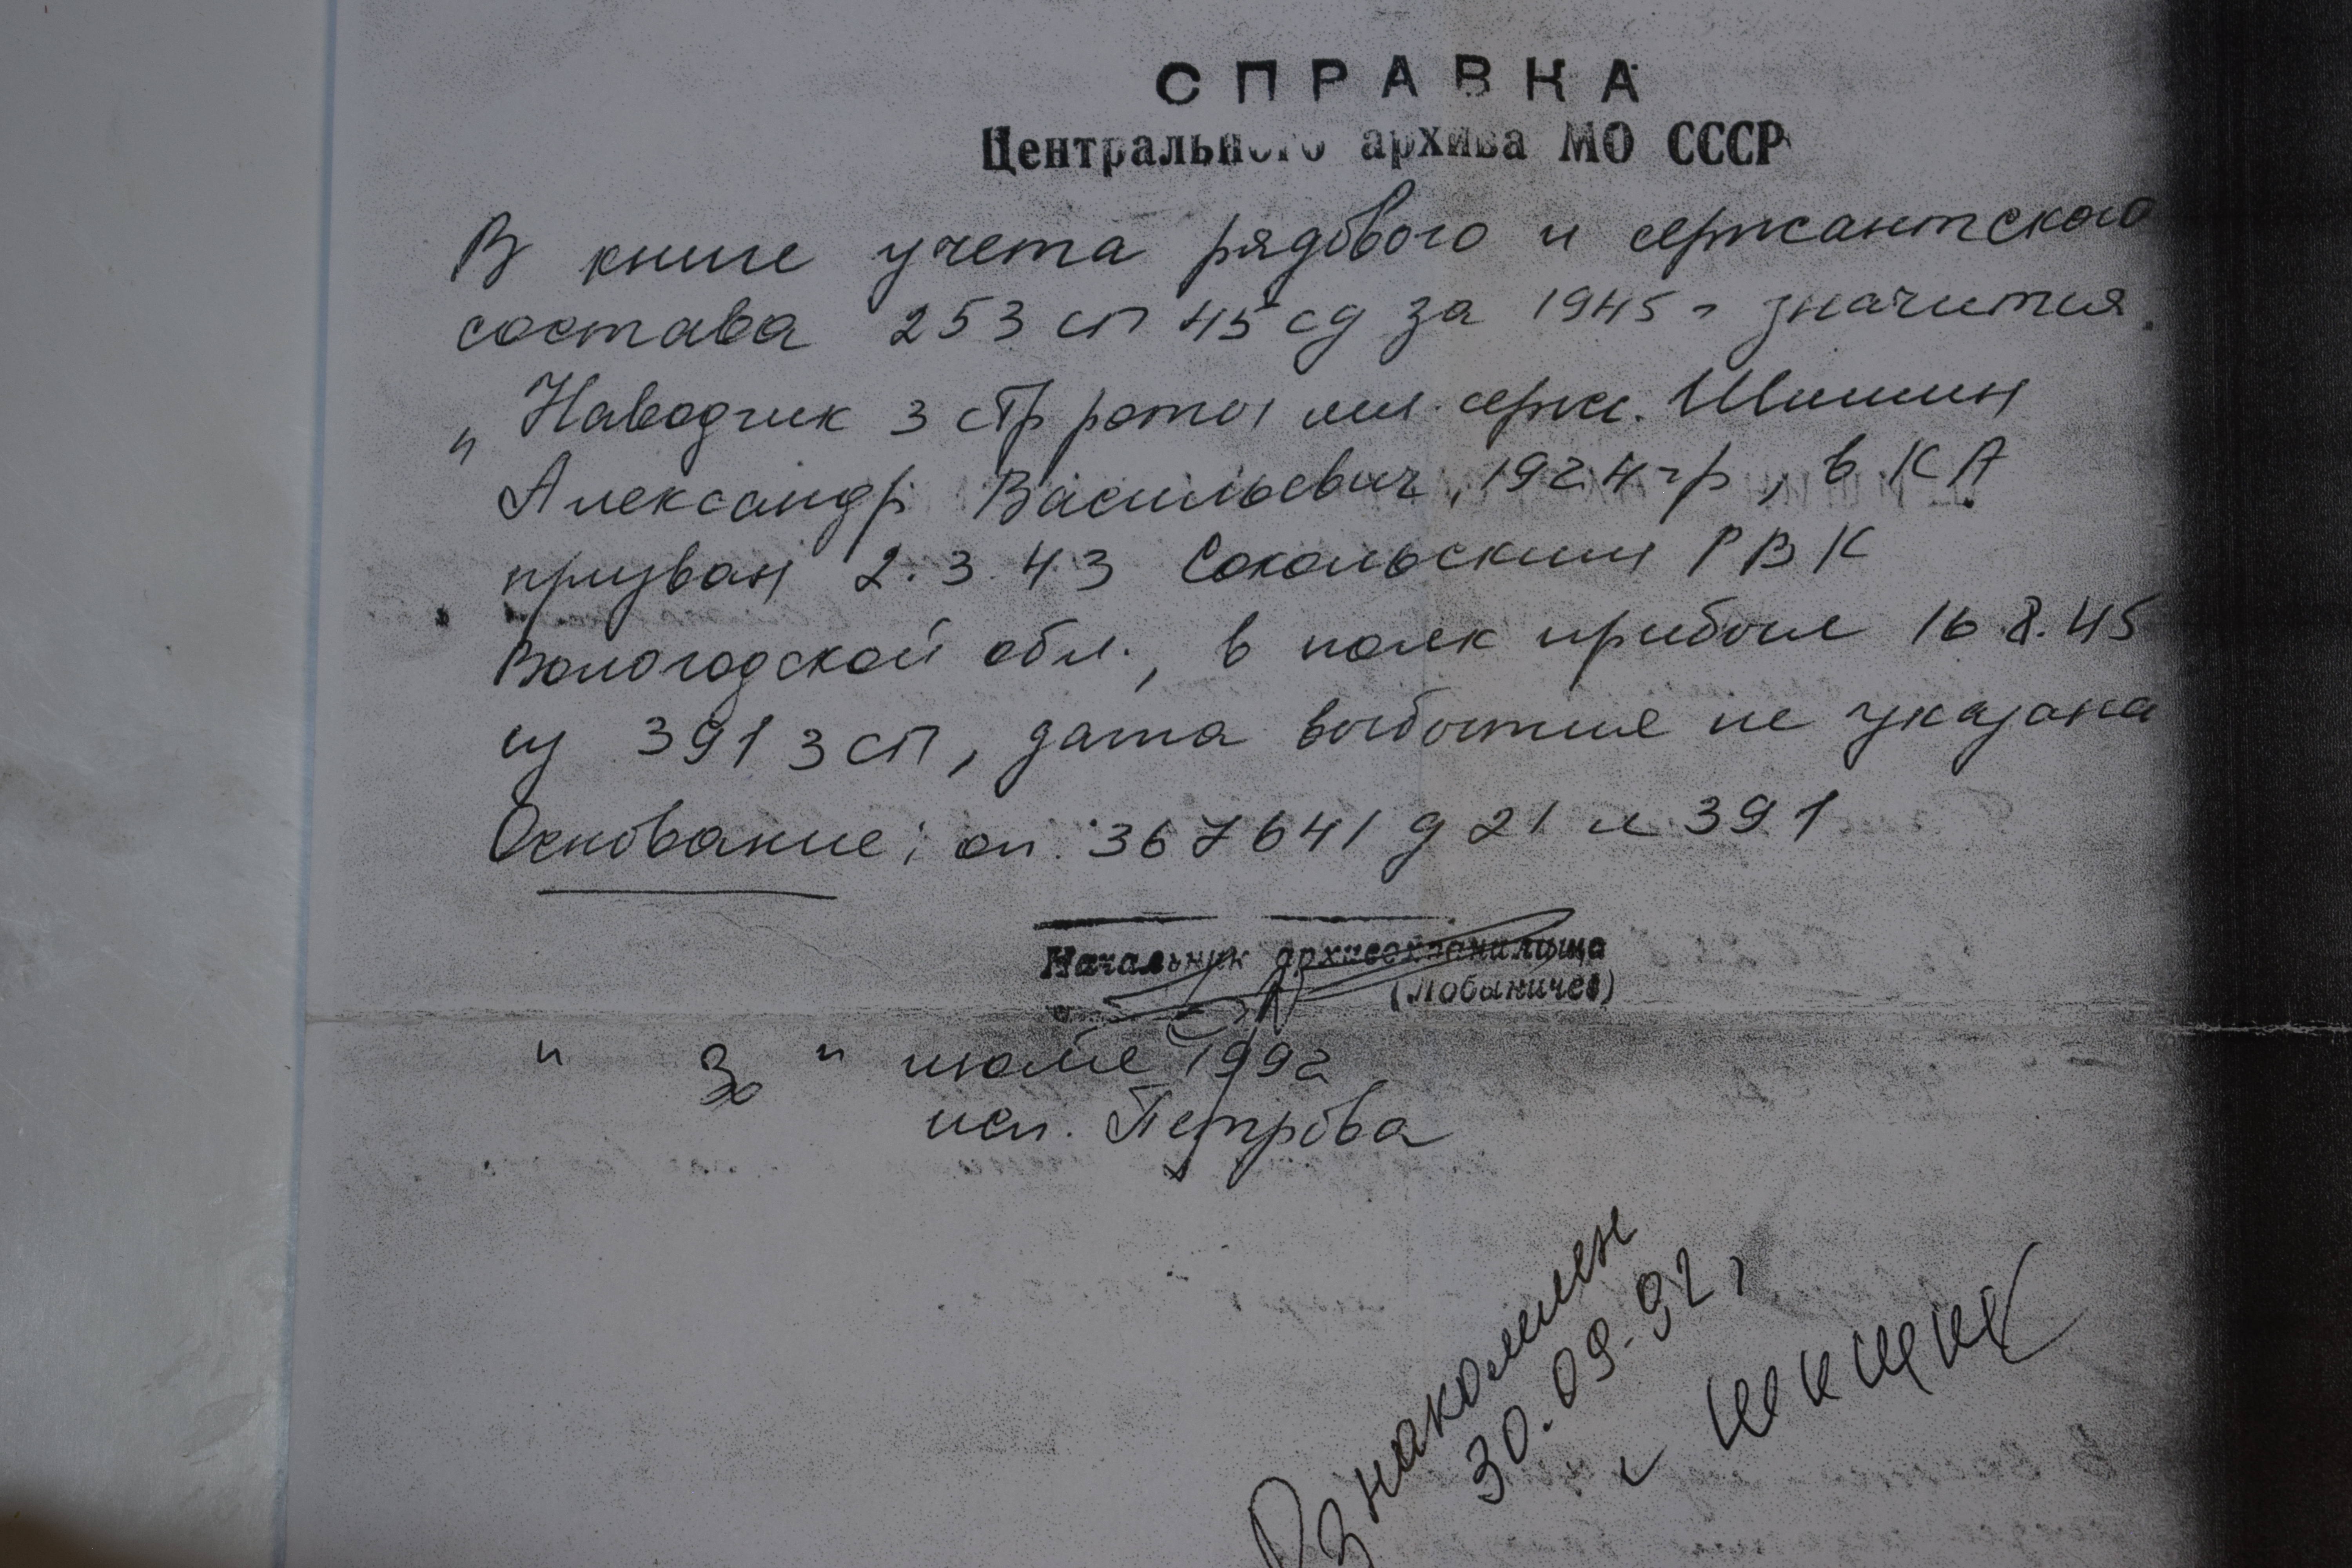 СПРАВКА
Центрального архива МО СССР
В книге учета рядового и сержантского
состава 253 сп 45 сд за 1945 г значится
„Наводчик 3 стр роты мл. серж. Шишин
Александр Васильевич, 1924 гр, в КА
призван 2.3.43 Сокольским РВК
Вологодской обл., в полк прибыл 16.8.45
из 391 зсп, дата выбытия не указана
Основание: оп. 367641 д 21 л 391
Начальник архивохранилища
(Лобыничев)
" 30 " июле 1992
исп. Петрова
Ознакомлен
30.09.92 г